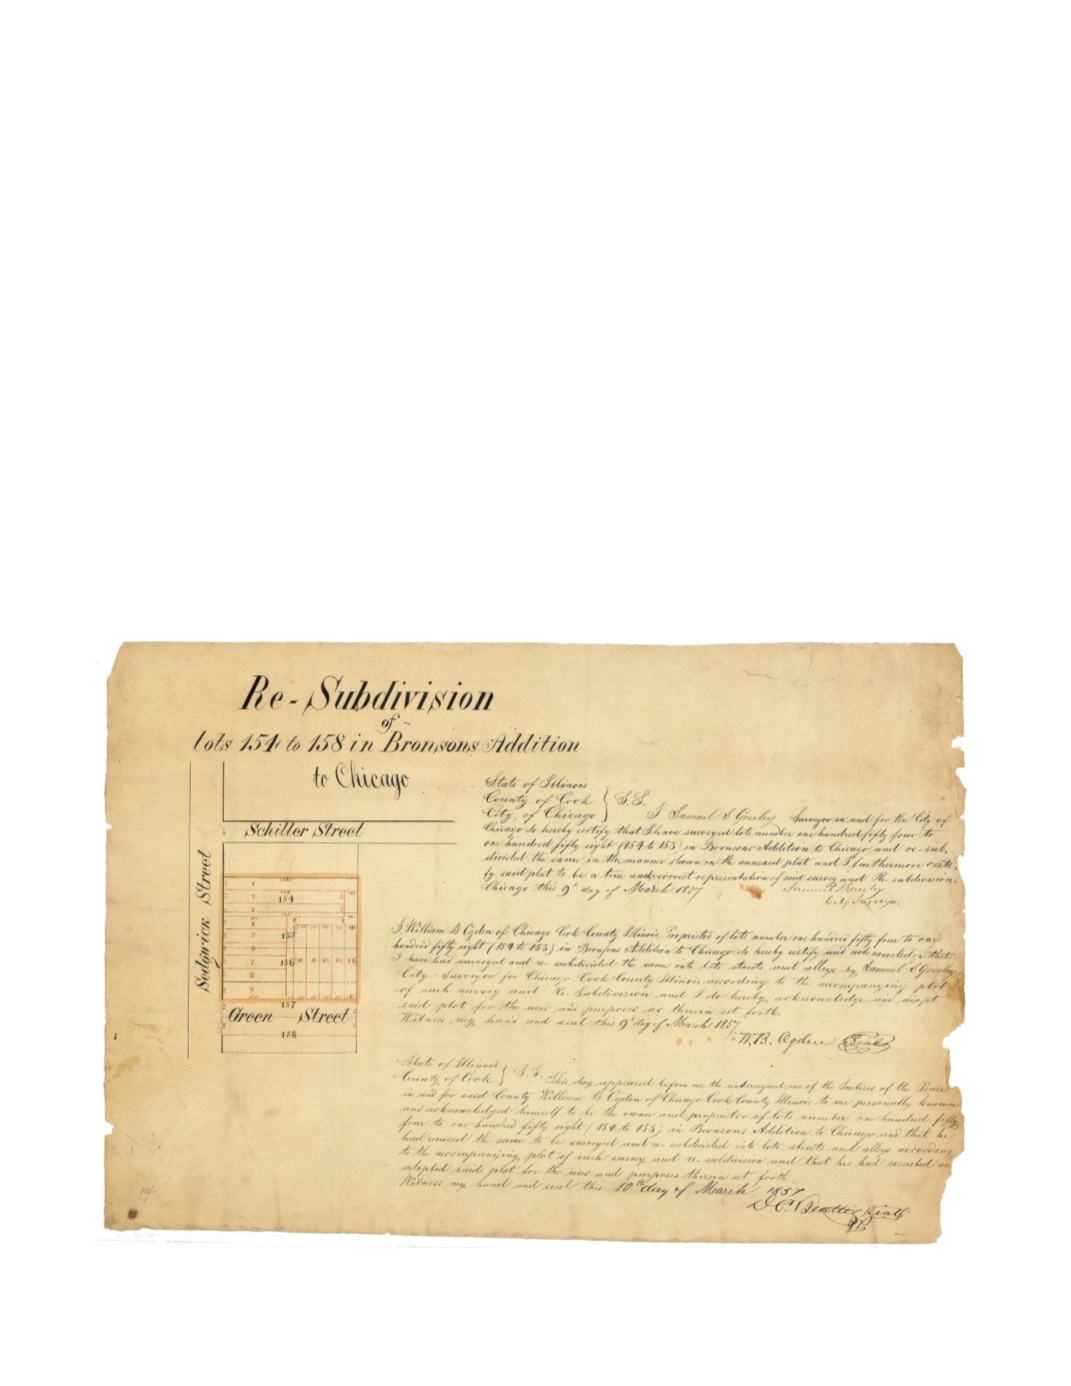 Re-Subdivision
of
lots 154 to 158 in Bronsons Addition
to Chicago
Schiller Street
Sedgwick Street
154
155
156
157
Green Street
158
State of Illinois
County of Cook } S.S.
City of Chicago
I Samuel S Greeley Surveyor in and for the City of
Chicago do hereby certify that I have surveyed lots number one hundred fifty four to
one hundred fifty eight (154 to 158) in Bronsons Addition to Chicago and re-sub-
divided the same in the manner shown on the annexed plat and I furthermore certi-
fy said plat to be a true and correct representation of said survey and Re-subdivision.
Chicago this 9th day of March 1857
City Surveyor
I William B Ogden of Chicago Cook County Illinois Proprietor of lots number one hundred fifty four to one
hundred fifty eight (154 to 158) in Bronsons Addition to Chicago do hereby certify and acknowledge that
I have had surveyed and re-subdivided the same into lots streets and alleys by Samuel S Greeley
City Surveyor for Chicago Cook County Illinois according to the accompanying plot
of such survey and Re-Subdivision and I do hereby acknowledge and adopt
said plot for the uses and purposes as therein set forth.
Witness my hand and seal this 9th day of March 1857
W.B. Ogden (Seal)
State of Illinois
County of Cook } S.S. This day appeared before me the undersigned one of the Justices of the Peace
in and for said County William B Ogden of Chicago Cook County Illinois to me personally known
and acknowledged himself to be the owner and proprietor of lots number one hundred fifty
four to one hundred fifty eight (154 to 158) in Bronsons Addition to Chicago and that he
had caused the same to be surveyed and re-subdivided into lots streets and alleys according
to the accompanying plot of such survey and re-subdivision and that he had executed and
adopted said plot for the uses and purposes therein set forth.
Witness my hand and seal this 10th day of March 1857